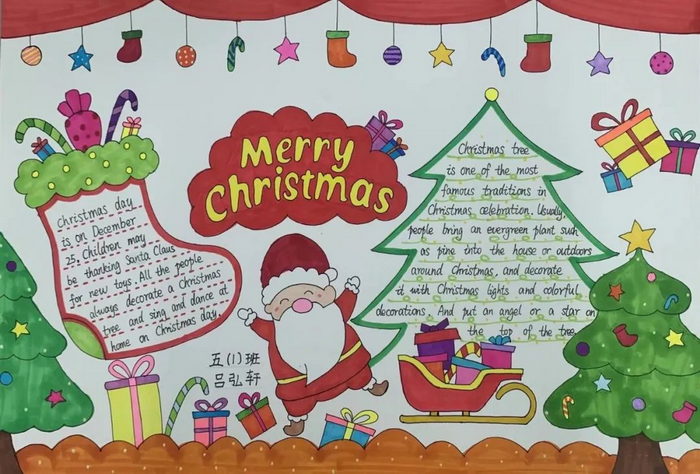 Merry
Christmas
Christmas day
is on December
25. Children may
be thanking Santa Claus
for new toys. All the people
always decorate a Christmas
tree and sing and dance at
home on Christmas day.
Christmas tree
is one of the most
famous traditions in
Christmas celebration. Usually,
people bring an evergreen plant such
as pine into the house or outdoors
around Christmas, and decorate
it with Christmas lights and colorful
decorations. And put an angel or a star on
the top of the tree.
五(1)班
吕弘轩